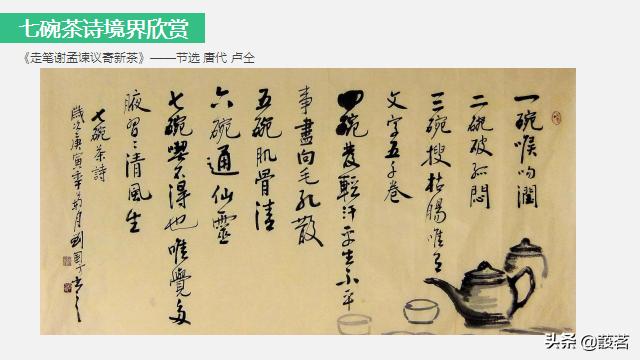 七碗茶诗境界欣赏
《走笔谢孟谏议寄新茶》——节选 唐代 卢仝
一碗喉吻潤
二碗破孤悶
三碗搜枯腸唯有
文字五千卷
四碗發輕汗平生不平
事盡向毛孔散
五碗肌骨清
六碗通仙靈
七碗喫不得也唯覺两
腋習〻清風生
七碗茶詩
歲次庚寅年 月劉國 書之
头条 @蔎茗